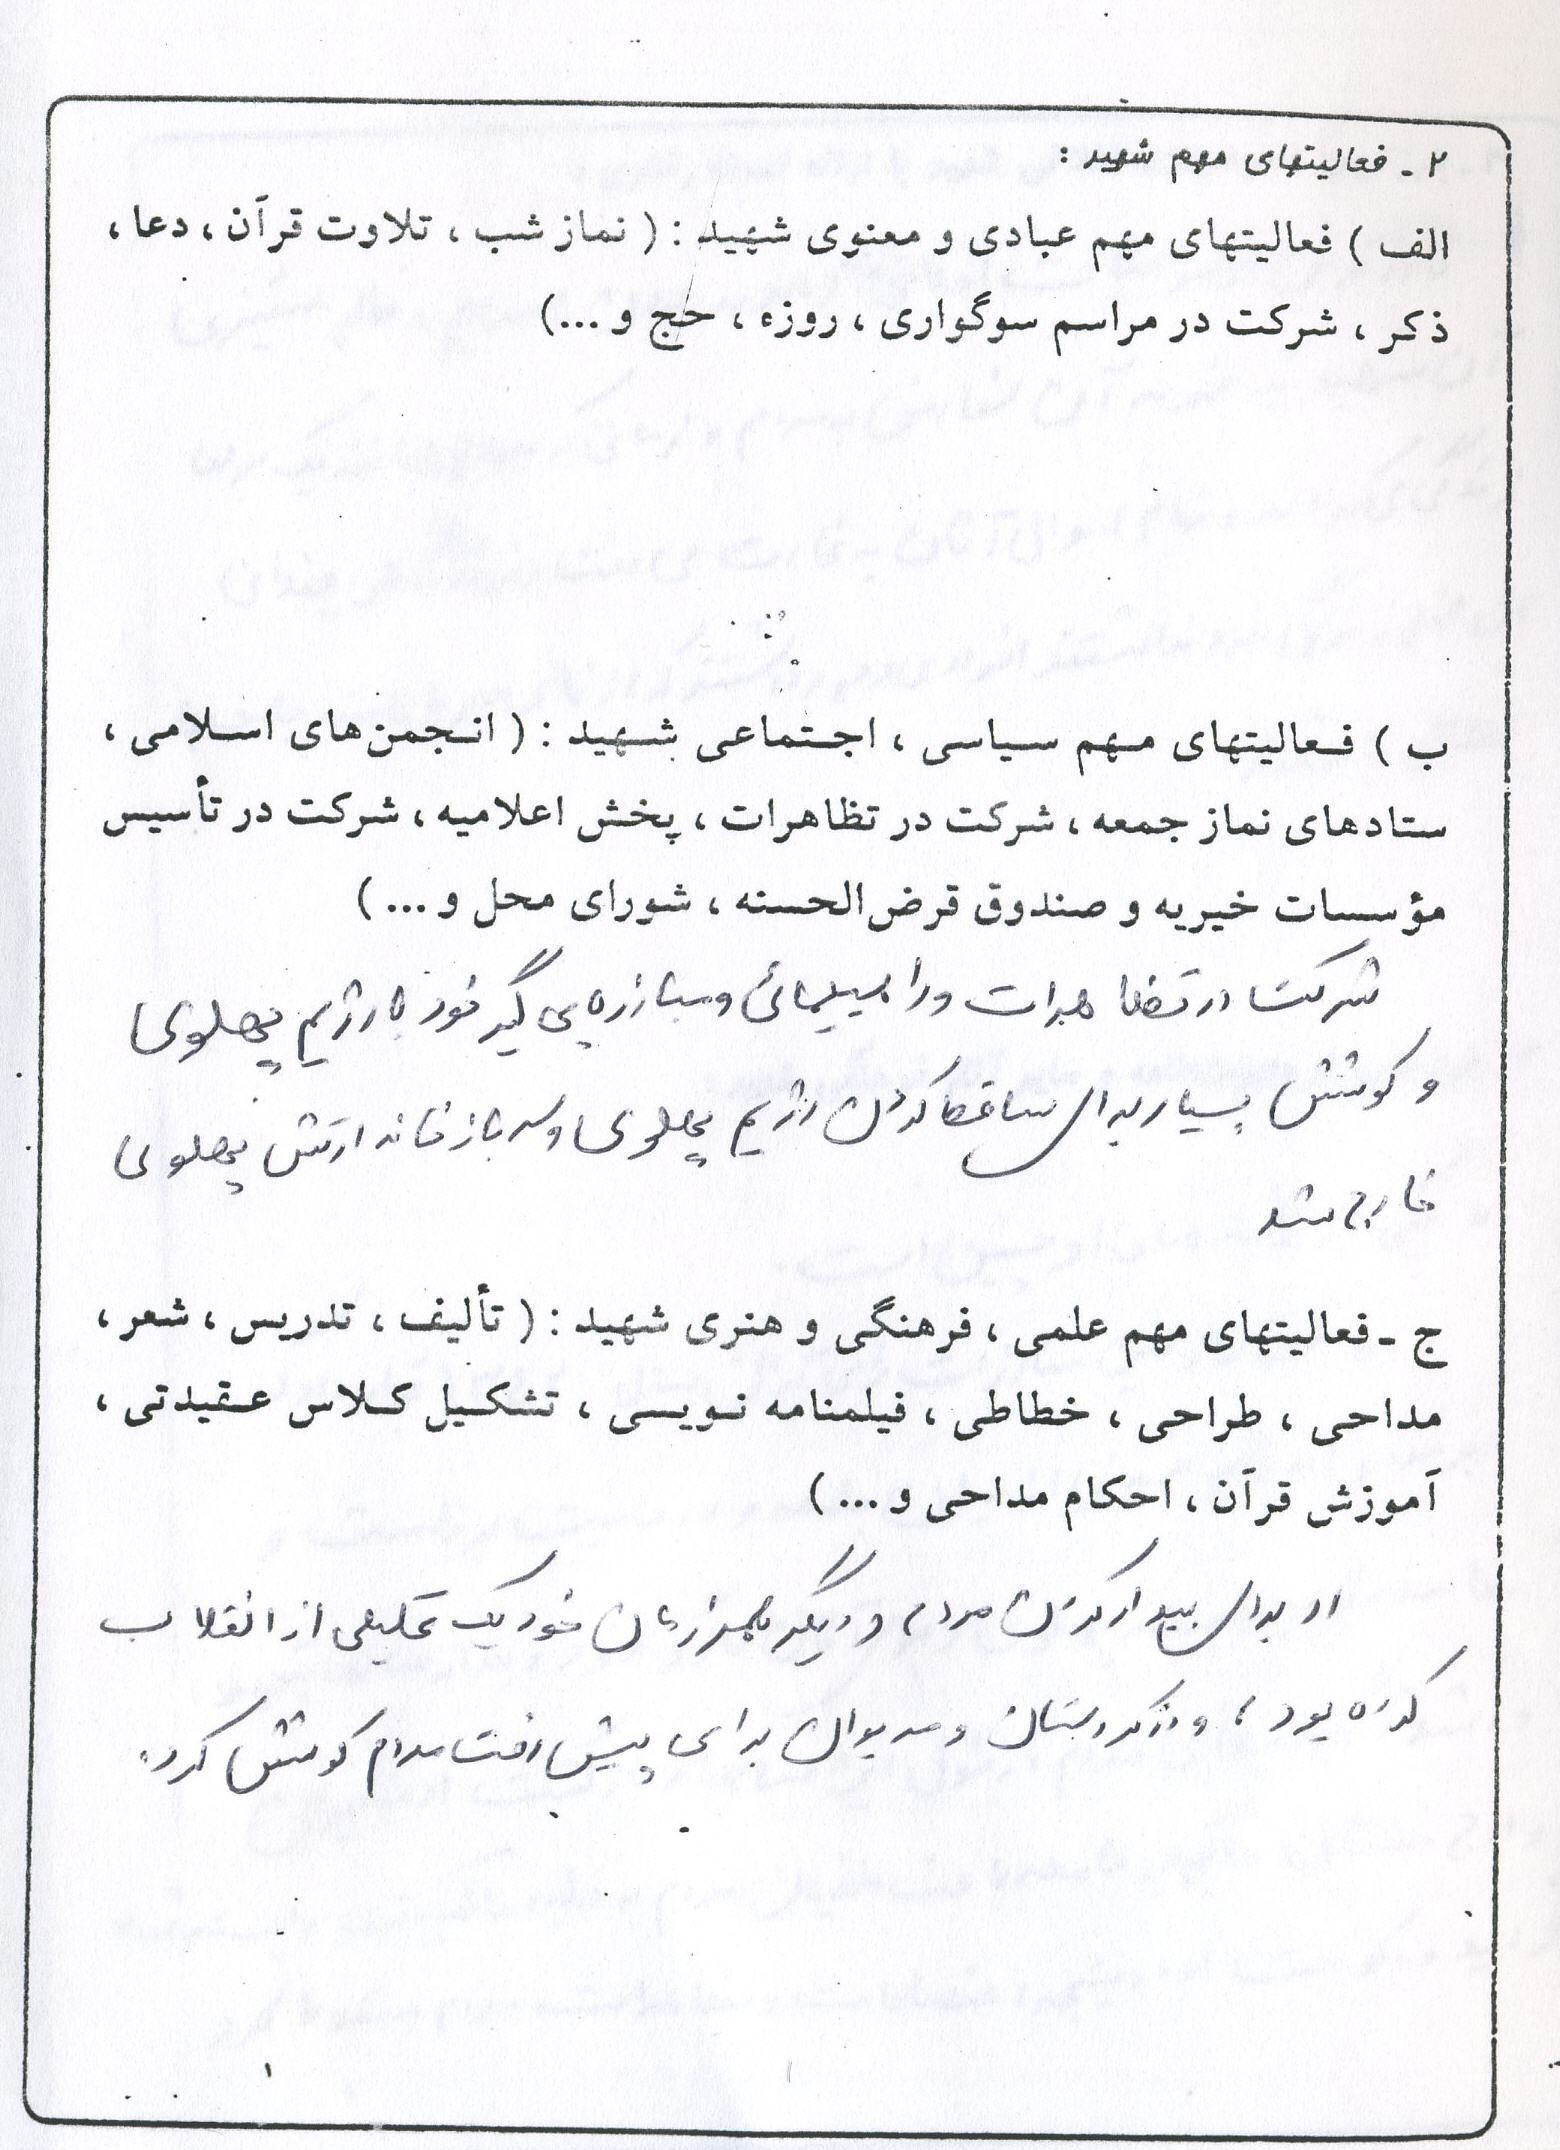 ۲ ـ فعالیتهای مهم شهید :
الف ) فعالیتهای مهم عبادی و معنوی شهید : ( نماز شب ، تلاوت قرآن ، دعا ،
ذکر ، شرکت در مراسم سوگواری ، روزه ، حج و ...)
ب ) فعالیتهای مهم سیاسی ، اجتماعی شهید : ( انجمن‌های اسلامی ،
ستادهای نماز جمعه ، شرکت در تظاهرات ، پخش اعلامیه ، شرکت در تأسیس
مؤسسات خیریه و صندوق قرض‌الحسنه ، شورای محل و ... )
شرکت در تضاهرات و راهپیمائی و مبارزه پی گیر خود با رژیم پهلوی
و کوشش بسیار برای ساقط کردن رژیم پهلوی و سربازخانه ارتش پهلوی
خارج شد
ج ـ فعالیتهای مهم علمی ، فرهنگی و هنری شهید : ( تألیف ، تدریس ، شعر ،
مداحی ، طراحی ، خطاطی ، فیلمنامه نویسی ، تشکیل کلاس عقیدتی ،
آموزش قرآن ، احکام مداحی و ... )
او برای بیدار کردن مردم و دیگر همرزمان خود یک تحلیلی از انقلاب
کرده بود ، و در کردستان و مریوان برای پیش رفت مردم کوشش کرد.